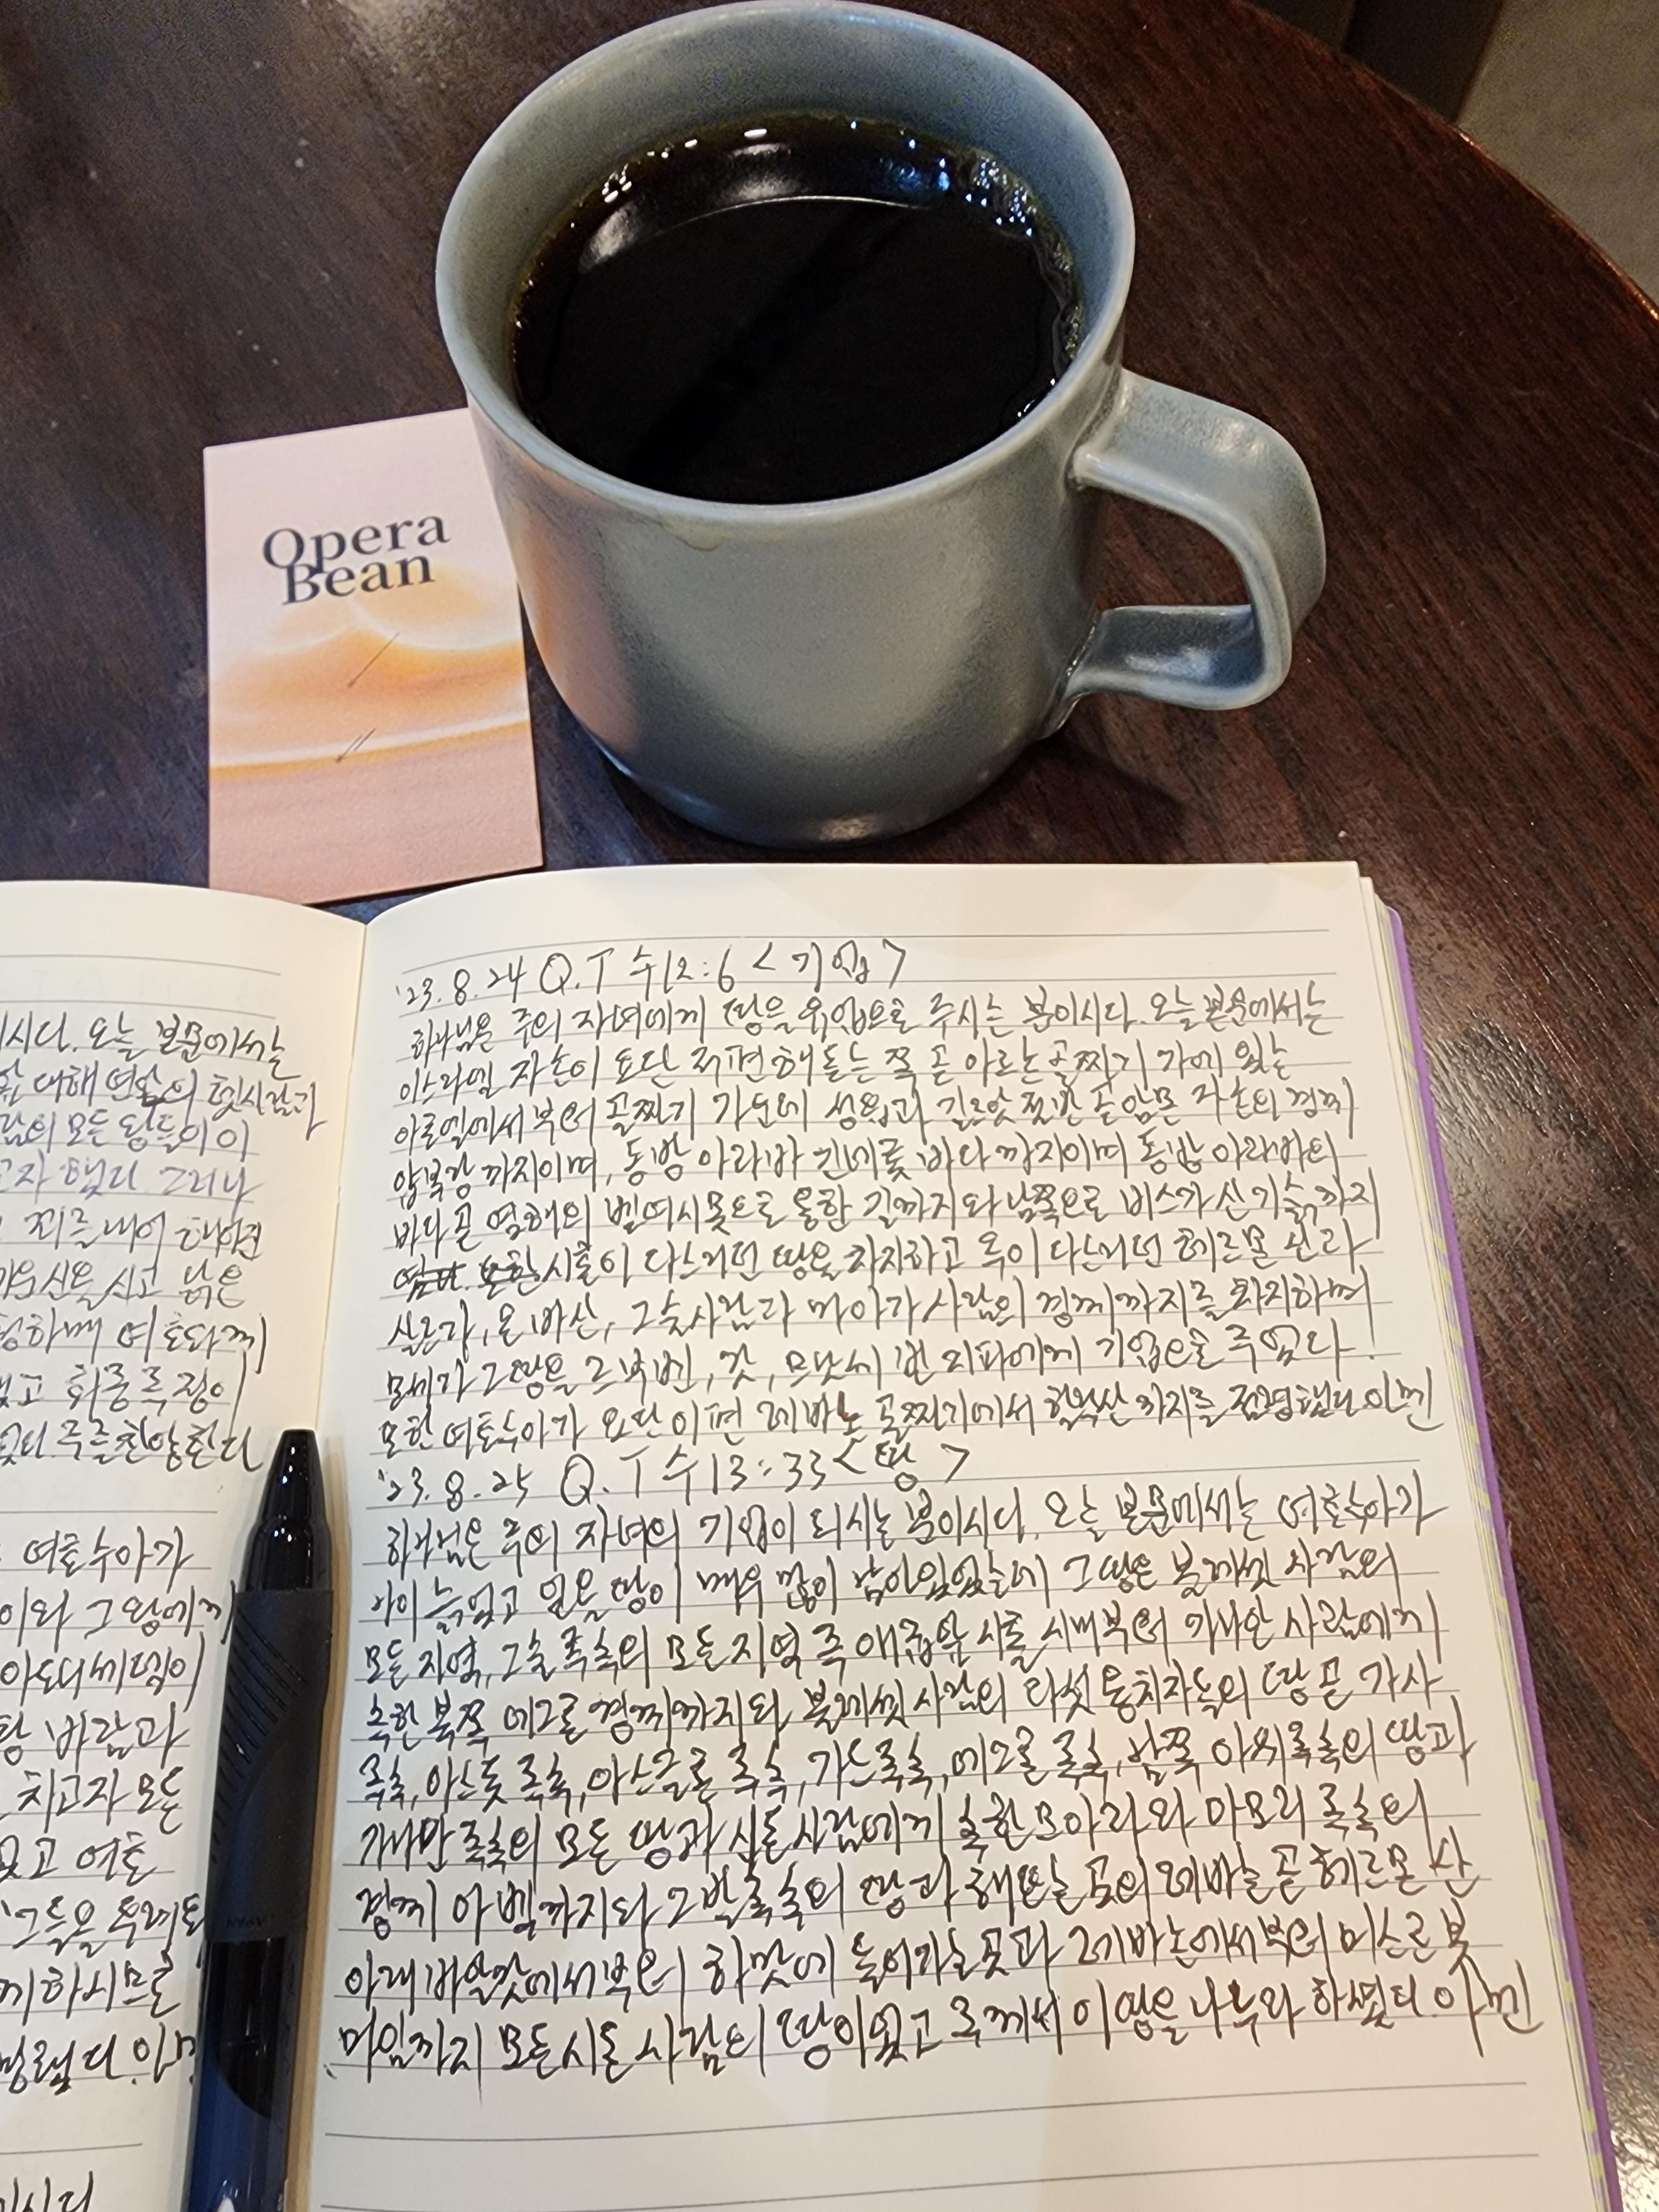 Opera
Bean
'23.8.24 Q.T 수12:6 <기업>
하나님은 주의 자녀에게 땅을 유업으로 주시는 분이시다. 오늘 본문에서는
이스라엘 자손이 요단 저편 해돋는 쪽 곧 아르논 골짜기 가에 있는
아로엘에서부터 골짜기 가운데 성읍과 길르앗 절반 곧 암몬 자손의 경계
얍복강까지이며, 동방 아라바 긴네롯 바다까지이며 동방 아라바의
바다 곧 염해의 벧여시못으로 통한 길까지와 남쪽으로 비스가 산기슭까지
시혼이 다스리던 땅을 차지하고 옥이 다스리던 헤르몬 산과
살르가, 온 바산, 그술사람과 마아가 사람의 경계까지를 차지하며
모세가 그 땅을 르우벤, 갓, 므낫세 반 지파에게 기업으로 주었다!
또한 여호수아가 요단 이편 레바논 골짜기에서 할락산까지를 점령했다 아멘
'23.8.25 Q.T 수13:33 <땅>
하나님은 주의 자녀의 기업이 되시는 분이시다. 오늘 본문에서는 여호수아가
나이 늙었고 얻을 땅이 매우 많이 남아있었는데 그 땅은 블레셋 사람의
모든 지역, 그술 족속의 모든 지역 곧 애굽 앞 시홀 시내부터 가나안 사람에게
속한 북쪽 에그론 경계까지와 블레셋 사람의 다섯 통치자들의 땅 곧 가사
족속, 아스돗 족속, 아스글론 족속, 가드족속, 에그론 족속, 남쪽 아위족속의 땅과
가나안 족속의 모든 땅과 시돈 사람에게 속한 므아라와 아모리 족속의
경계 아벡까지와 그발족속의 땅과 해뜨는 곳의 레바논 곧 헤르몬 산
아래 바알갓에서부터 하맛에 들어가는 곳과 레바논에서부터 미스르봇
마임까지 모든 시돈 사람의 땅이었고 주께서 이 땅을 나누라 하셨다. 아멘
이시다. 오늘 본문에서는
람의 모든 왕들이 이
고자 했다 그러나
꾀를 내어 해어진
신을 신고 낡은
하매 여호와께
고 화중 족장이
주를 찬양한다
여호수아가
이와 그 왕에게
아도니세덱이
바람과
치고자 모든
고 여호
그들을 두려워
께 하시므로
이시다